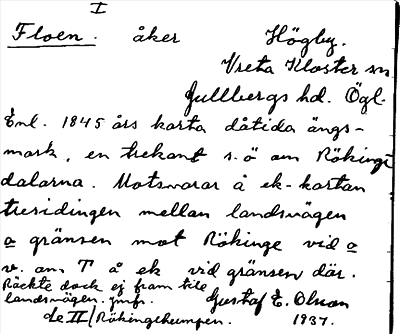 I
Floen. åker Högby.
Vreta Kloster sn
Gullbergs hd. Ögl.
Enl. 1845 års karta dåtida ängs-
mark, en trekant s. ö om Rökings
dalarna. Motsvarar å ek-kartan
tresidingen mellan landsvägen
o gränsen mot Rökinge vid o
v. om T å ek vid gränsen där.
Räckte dock ej fram till
landsvägen. jmf. Gustaf E. Olsson
de II/Rökingekumpen. 1937.